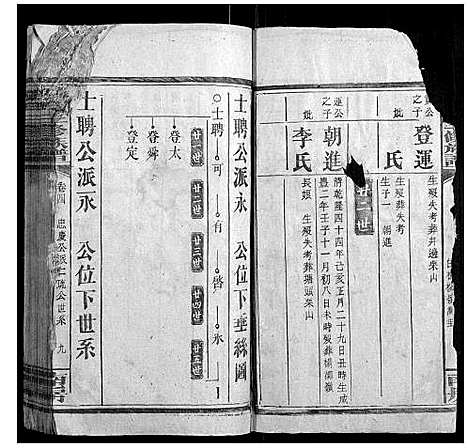 登運
公之子
生歿失考葬井邊來山
氏
妣
生歿葬失考
生子一 朝進
廿二世
朝進
運公之子
清乾隆四十四年己亥正月二十九日丑時生咸
豐二年壬子十一月初八日未時歿葬楊
李氏
妣
生歿失考葬塘
長嫄
士聘公派永 公位下垂絲圖
廿一世 廿二世 廿三世 廿四世 廿五世
士聘 可 有 啓 永
登太
登舜
登定
士聘公派永 公位下世系
修族譜
卷四 忠慶公派仁 公世系 九